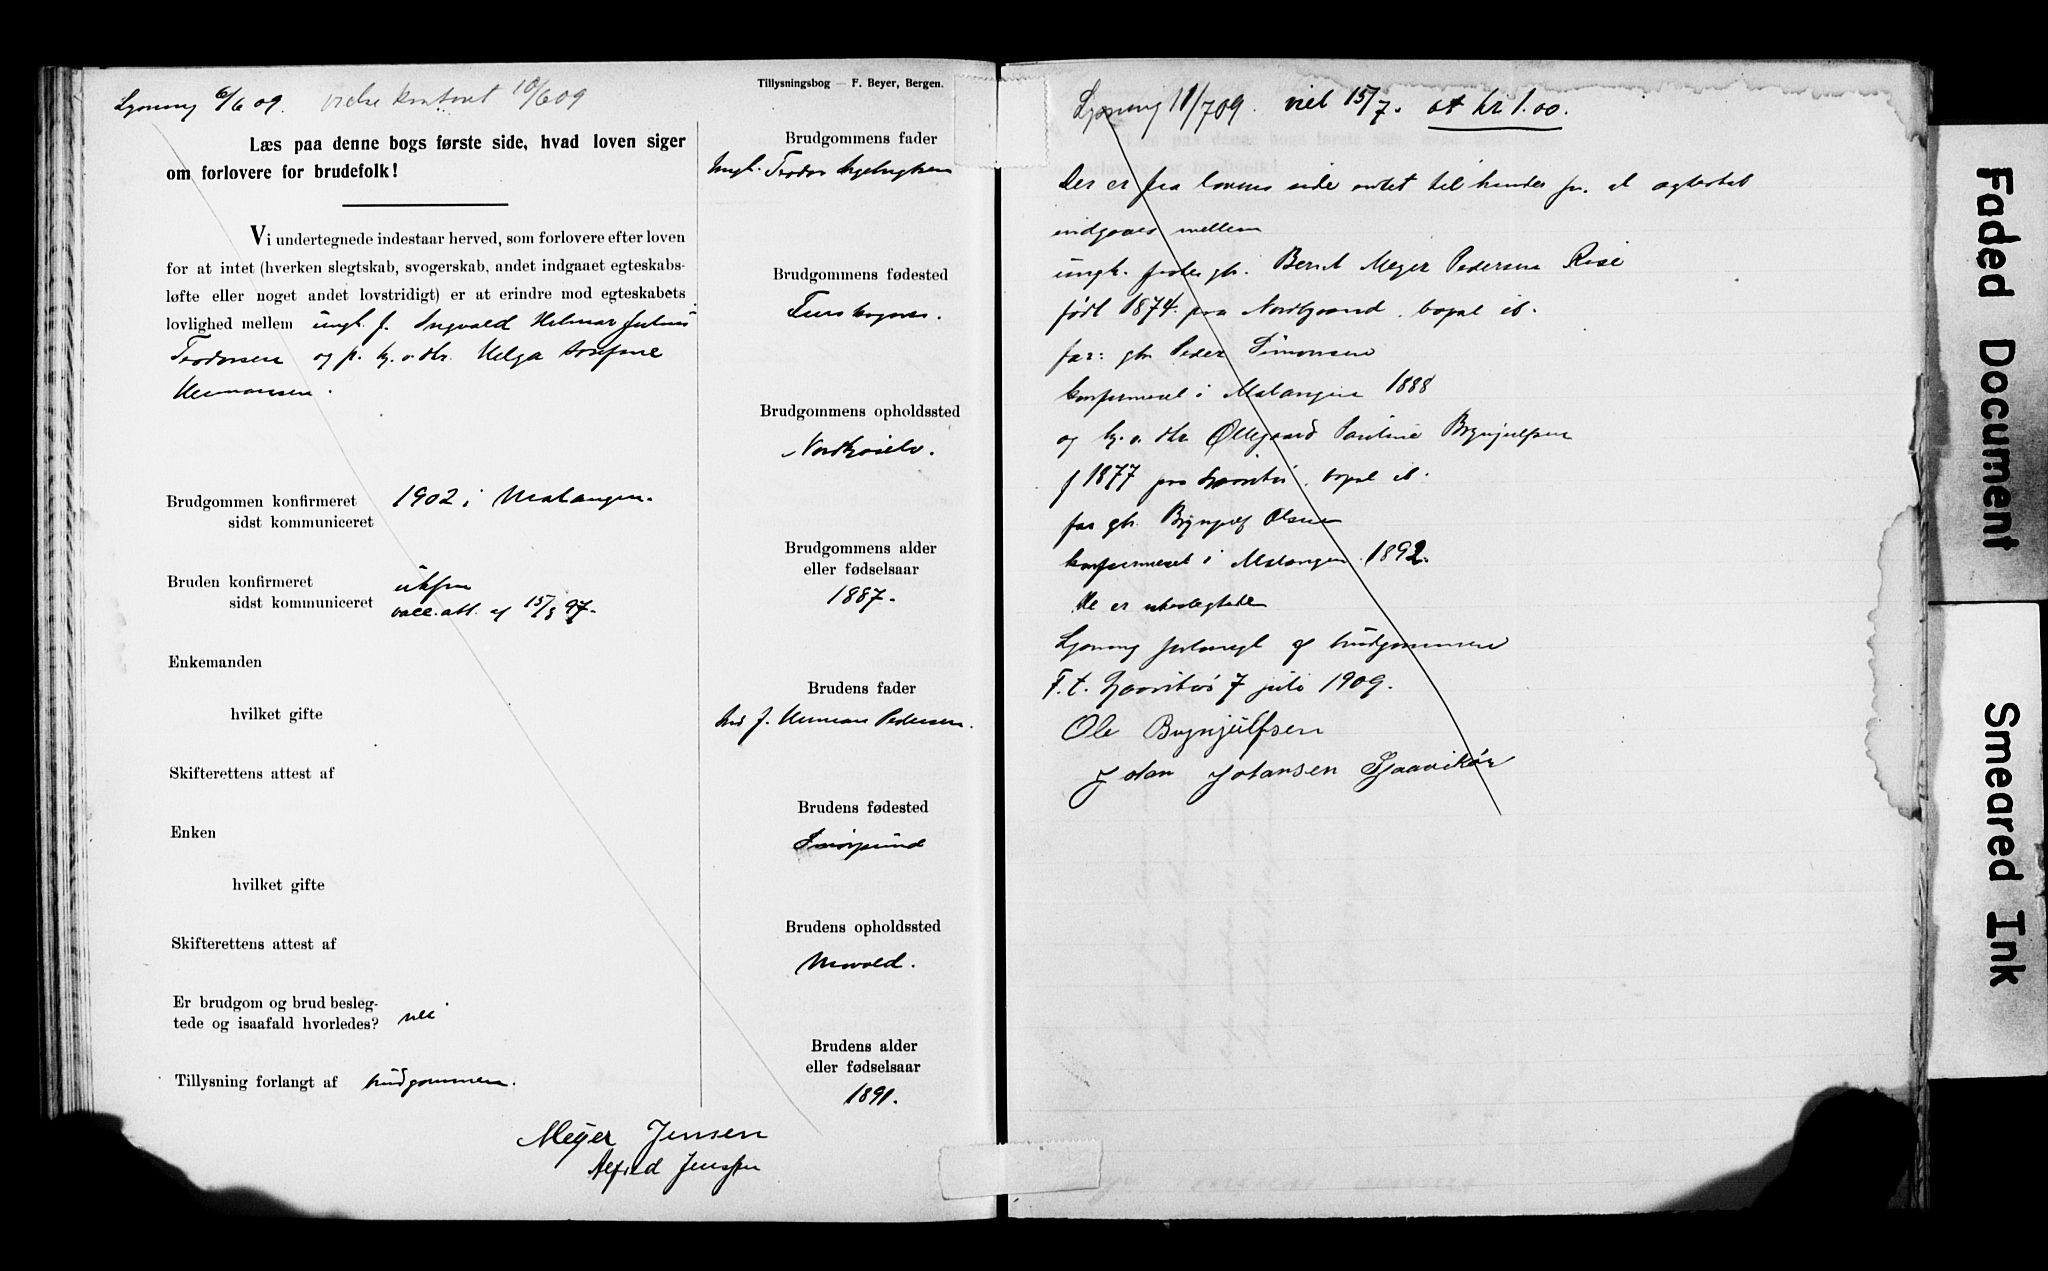 Lysning 6/6 09. vielse kontoret 10/6 09
Tillysningsbog — F. Beyer, Bergen.
Læs paa denne bogs første side, hvad loven siger
om forlovere for brudefolk!
Vi undertegnede indestaar herved, som forlovere efter loven
for at intet (hverken slegtskab, svogerskab, andet indgaaet egteskabs-
løfte eller noget andet lovstridigt) er at erindre mod egteskabets
lovlighed mellem ungk. f. Ingvald Hilmar Julius
Teodorsen og p. tj. o. dtr. Helga Josefine
Hermansen.
Brudgommen konfirmeret 1902 i Malangen.
sidst kommuniceret
Bruden konfirmeret ukfm
sidst kommuniceret vacc. att. af 15/8 97.
Enkemanden
hvilket gifte
Skifterettens attest af
Enken
hvilket gifte
Skifterettens attest af
Er brudgom og brud besleg-
tede og isaafald hvorledes? nei
Tillysning forlangt af brudgommen.
Brudgommens fader
ungk. Teodor
Brudgommens fødested
Brudgommens opholdssted
Brudgommens alder
eller fødselsaar
1887.
Brudens fader
Ind. f. Herman Pedersen.
Brudens fødested
Brudens opholdssted
Brudens alder
eller fødselsaar
1891.
Meyer Jensen
Alfred Jensen
Lysning 11/7 09. viet 15/7. at kr 1.00.
Der er fra lovens side intet til hinder for at ægteskab
indgaaes mellem
ungk. Bernt Meyer Pedersen Rise
født 1874 paa Nordgaard. bopæl ib.
far: gbr Peder Simonsen
konfirmeret i Malangen 1888
og tj. o. dtr Øllegaard Pauline Brynjulfsen
f 1877 paa bopæl ib.
far gbr. Brynjulf Olsen
konfirmeret i Malangen 1892.
De er ubeslegtede
Lysning forlangt af brudgommen
F. t. 7 juli 1909.
Ole Brynjulfsen
Johan Johansen
Faded Document
Smeared Ink